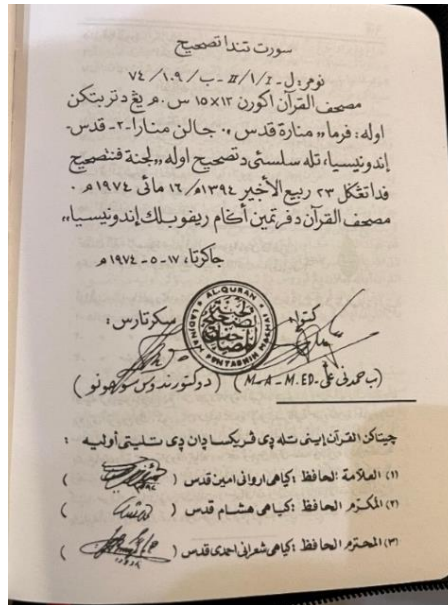 سورت تندا تصحيح
نومر: ل-I/١/II-ب/١٠٩/٧٤
مصحف القرآن اكورن ١٢×١٥ س.م يڠ دتربتكن
اوله: فرما „منارة قدس„. جالن منارا-٢-قدس-
إندونيسيا، تله سلسئ دتصحيح اوله „لجنة فنتصحيح
فدا تڠݢل ٢٣ ربيع الأخير ١٣٩٤ه/١٦ مائى ١٩٧٤م.
مصحف القرآن دفرتمين اݢام ريفوبلك إندونيسيا„
جاكرتا، ١٧-٥-١٩٧٤م
كتوا، سكرتارس:
LADJNAH PENTASHIH MASHAF AL-QURAN
(M-A-M.ED-ب حمدني علي) (دوكتورندوس سوهونو)
چيتاكن القرآن إيني تله دي فريكسا دان دي تليتي أوليه:
(١) العلامة الحافظ: كياهي ارواني امين قدس ( )
(٢) المكرّم الحافظ: كياهي هشام قدس ( )
(٣) المحترم الحافظ: كياهي شعراني احمدي قدس ( )